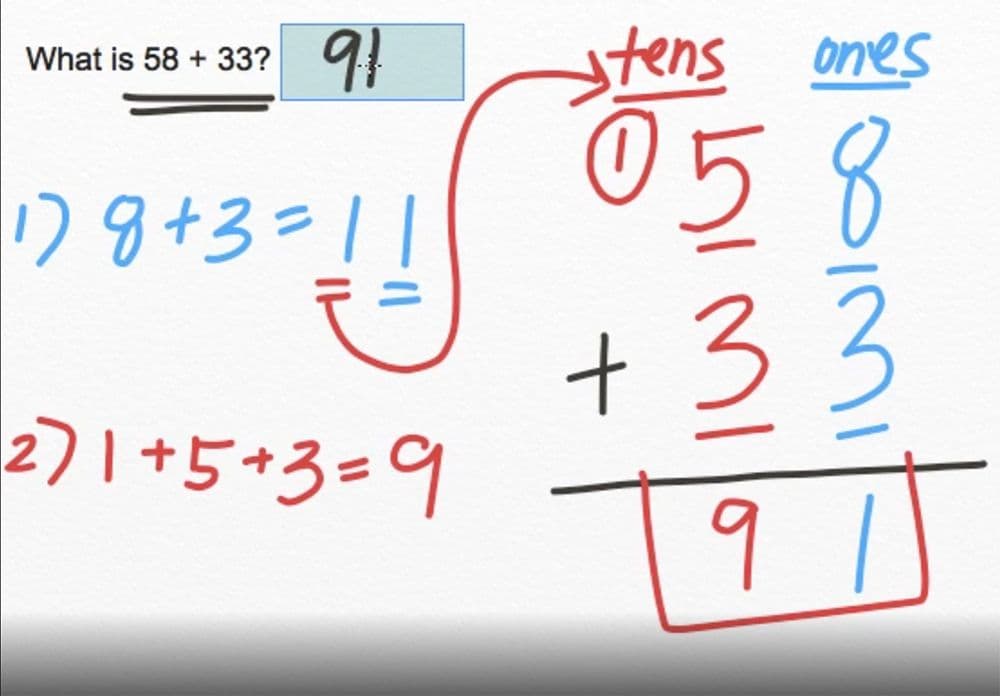 What is 58 + 33? 91
tens ones
1 5 8
1) 8+3=11
+ 3 3
2) 1+5+3=9
9 1